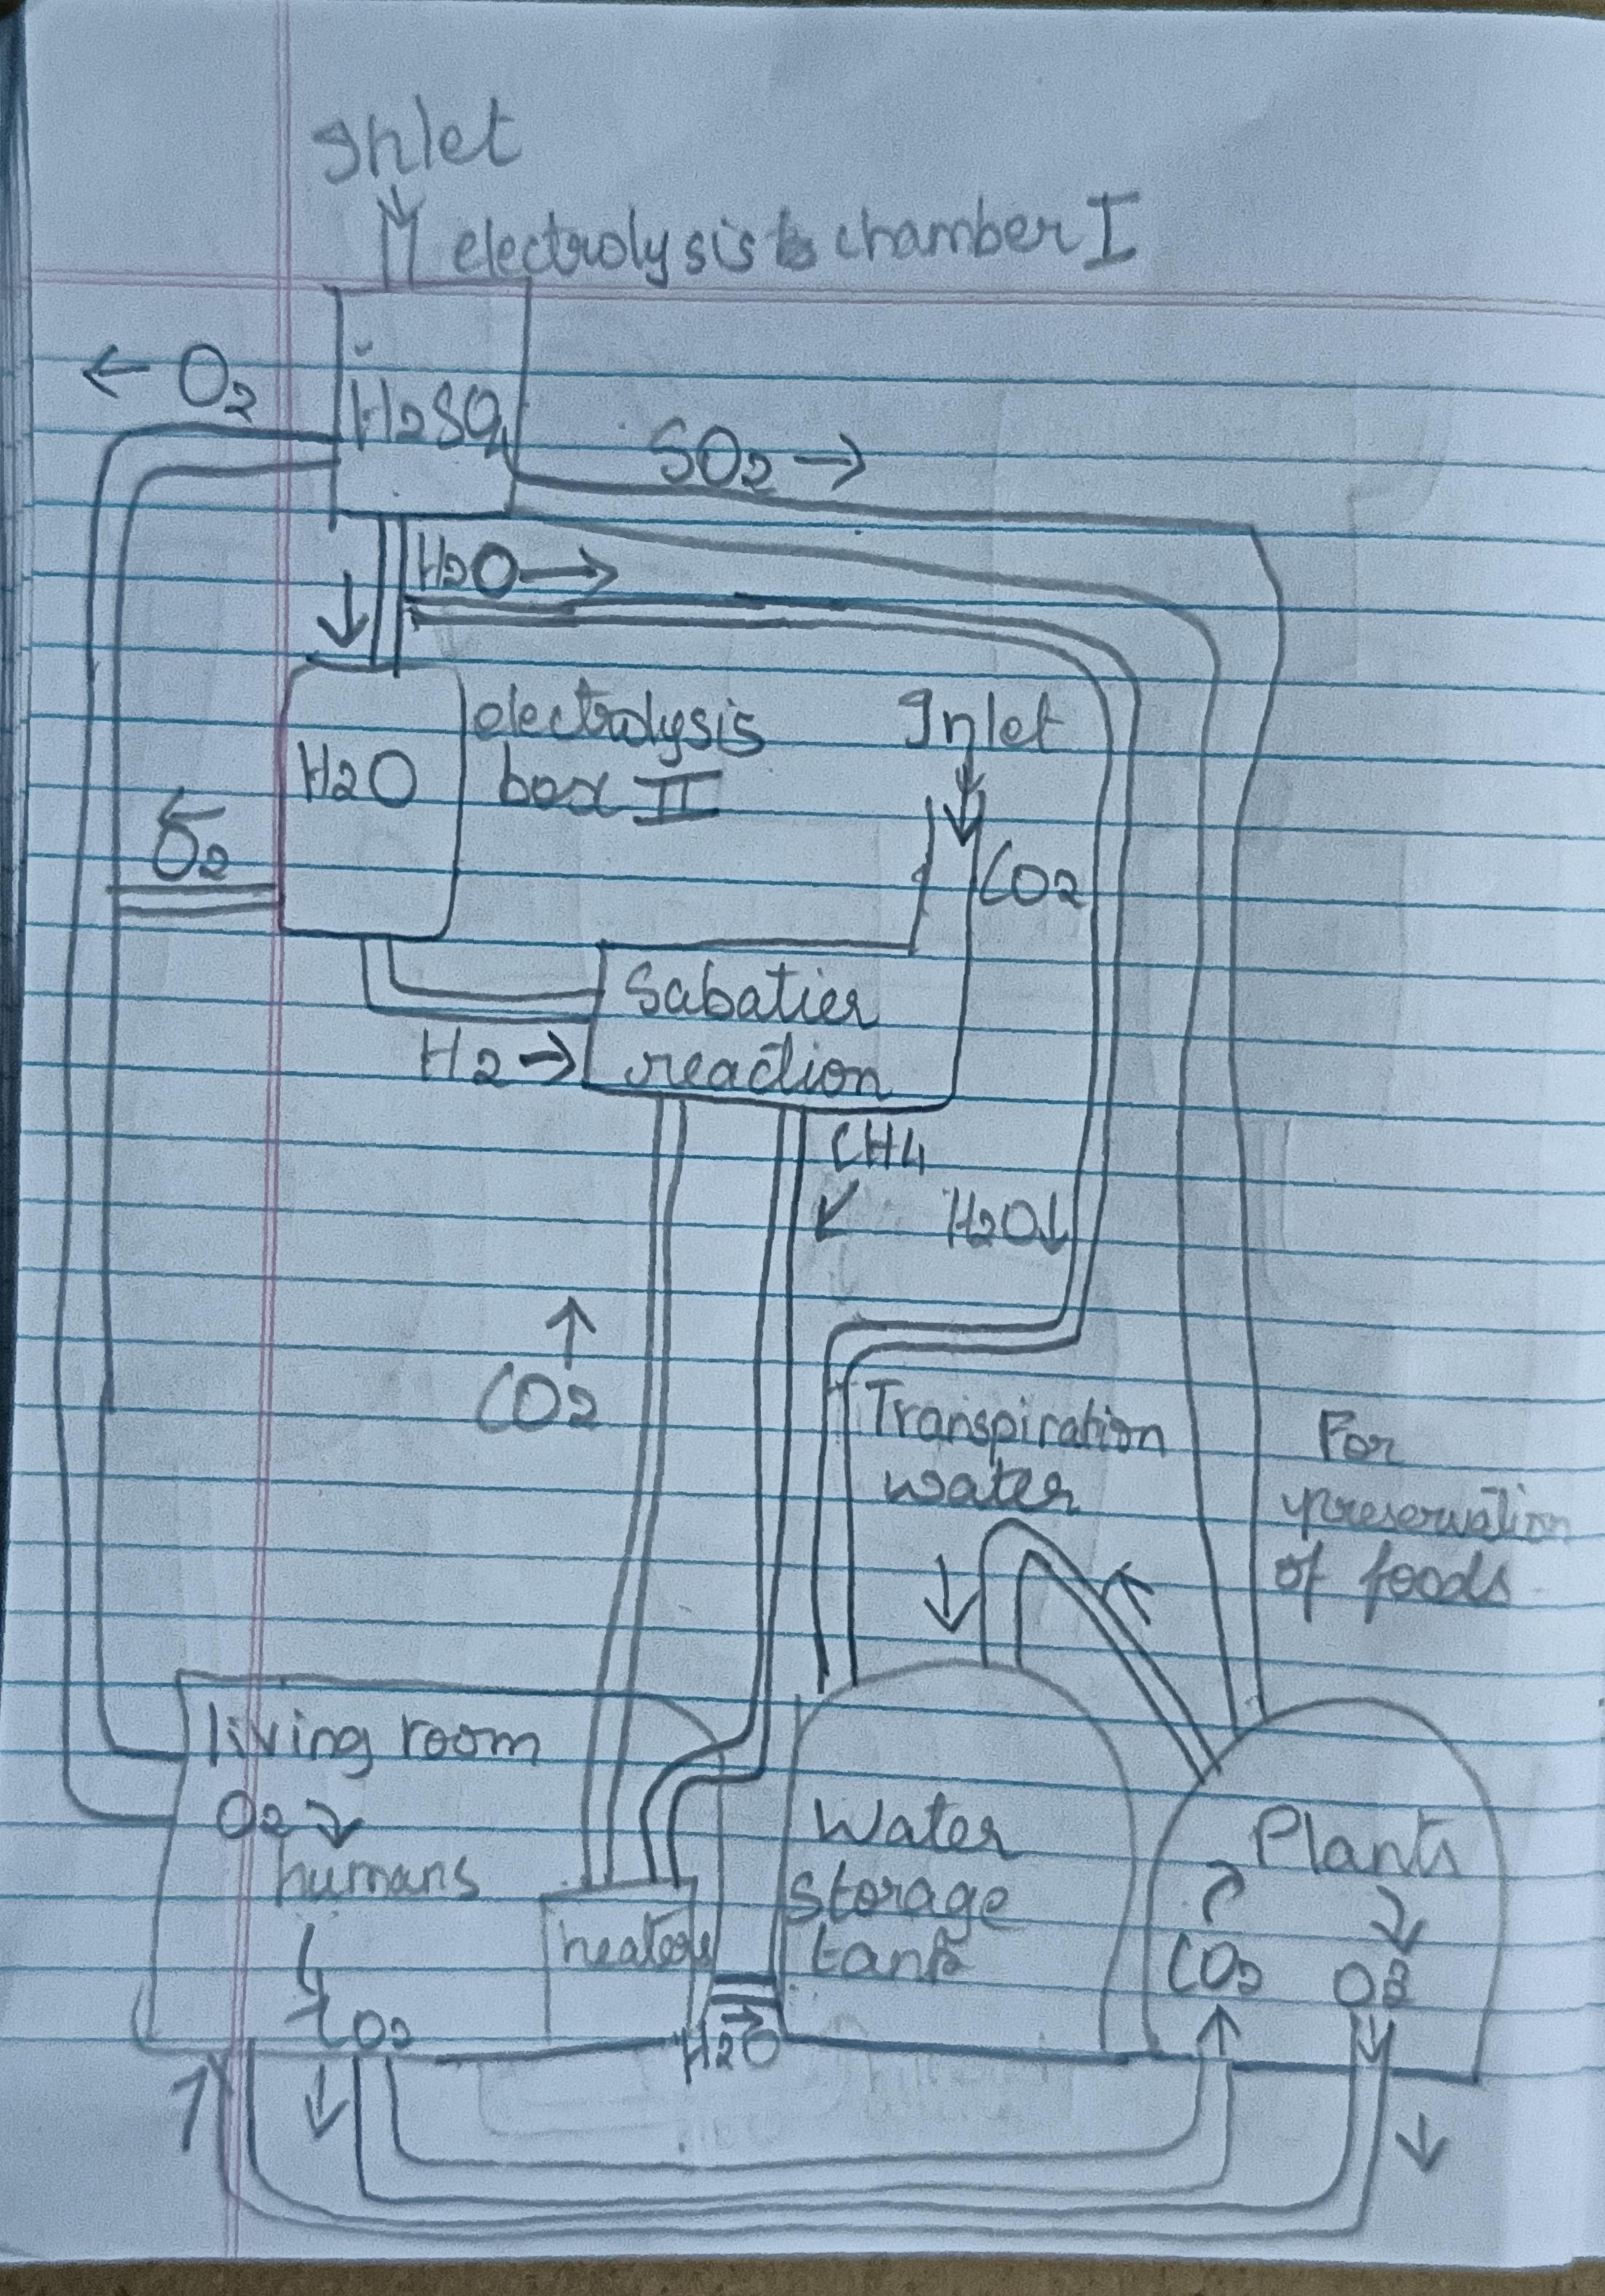 Inlet
electrolysis chamber I
← O2
H2SO4
SO2 →
H2O →
H2O
electrolysis
box II
Inlet
CO2
O2
Sabatier
reaction
H2 →
CH4
H2O ↓
CO2
Transpiration
water
For
preservation
of foods
living room
O2
humans
CO2
heaters
H2O
Water
storage
tank
Plants
CO2
O2